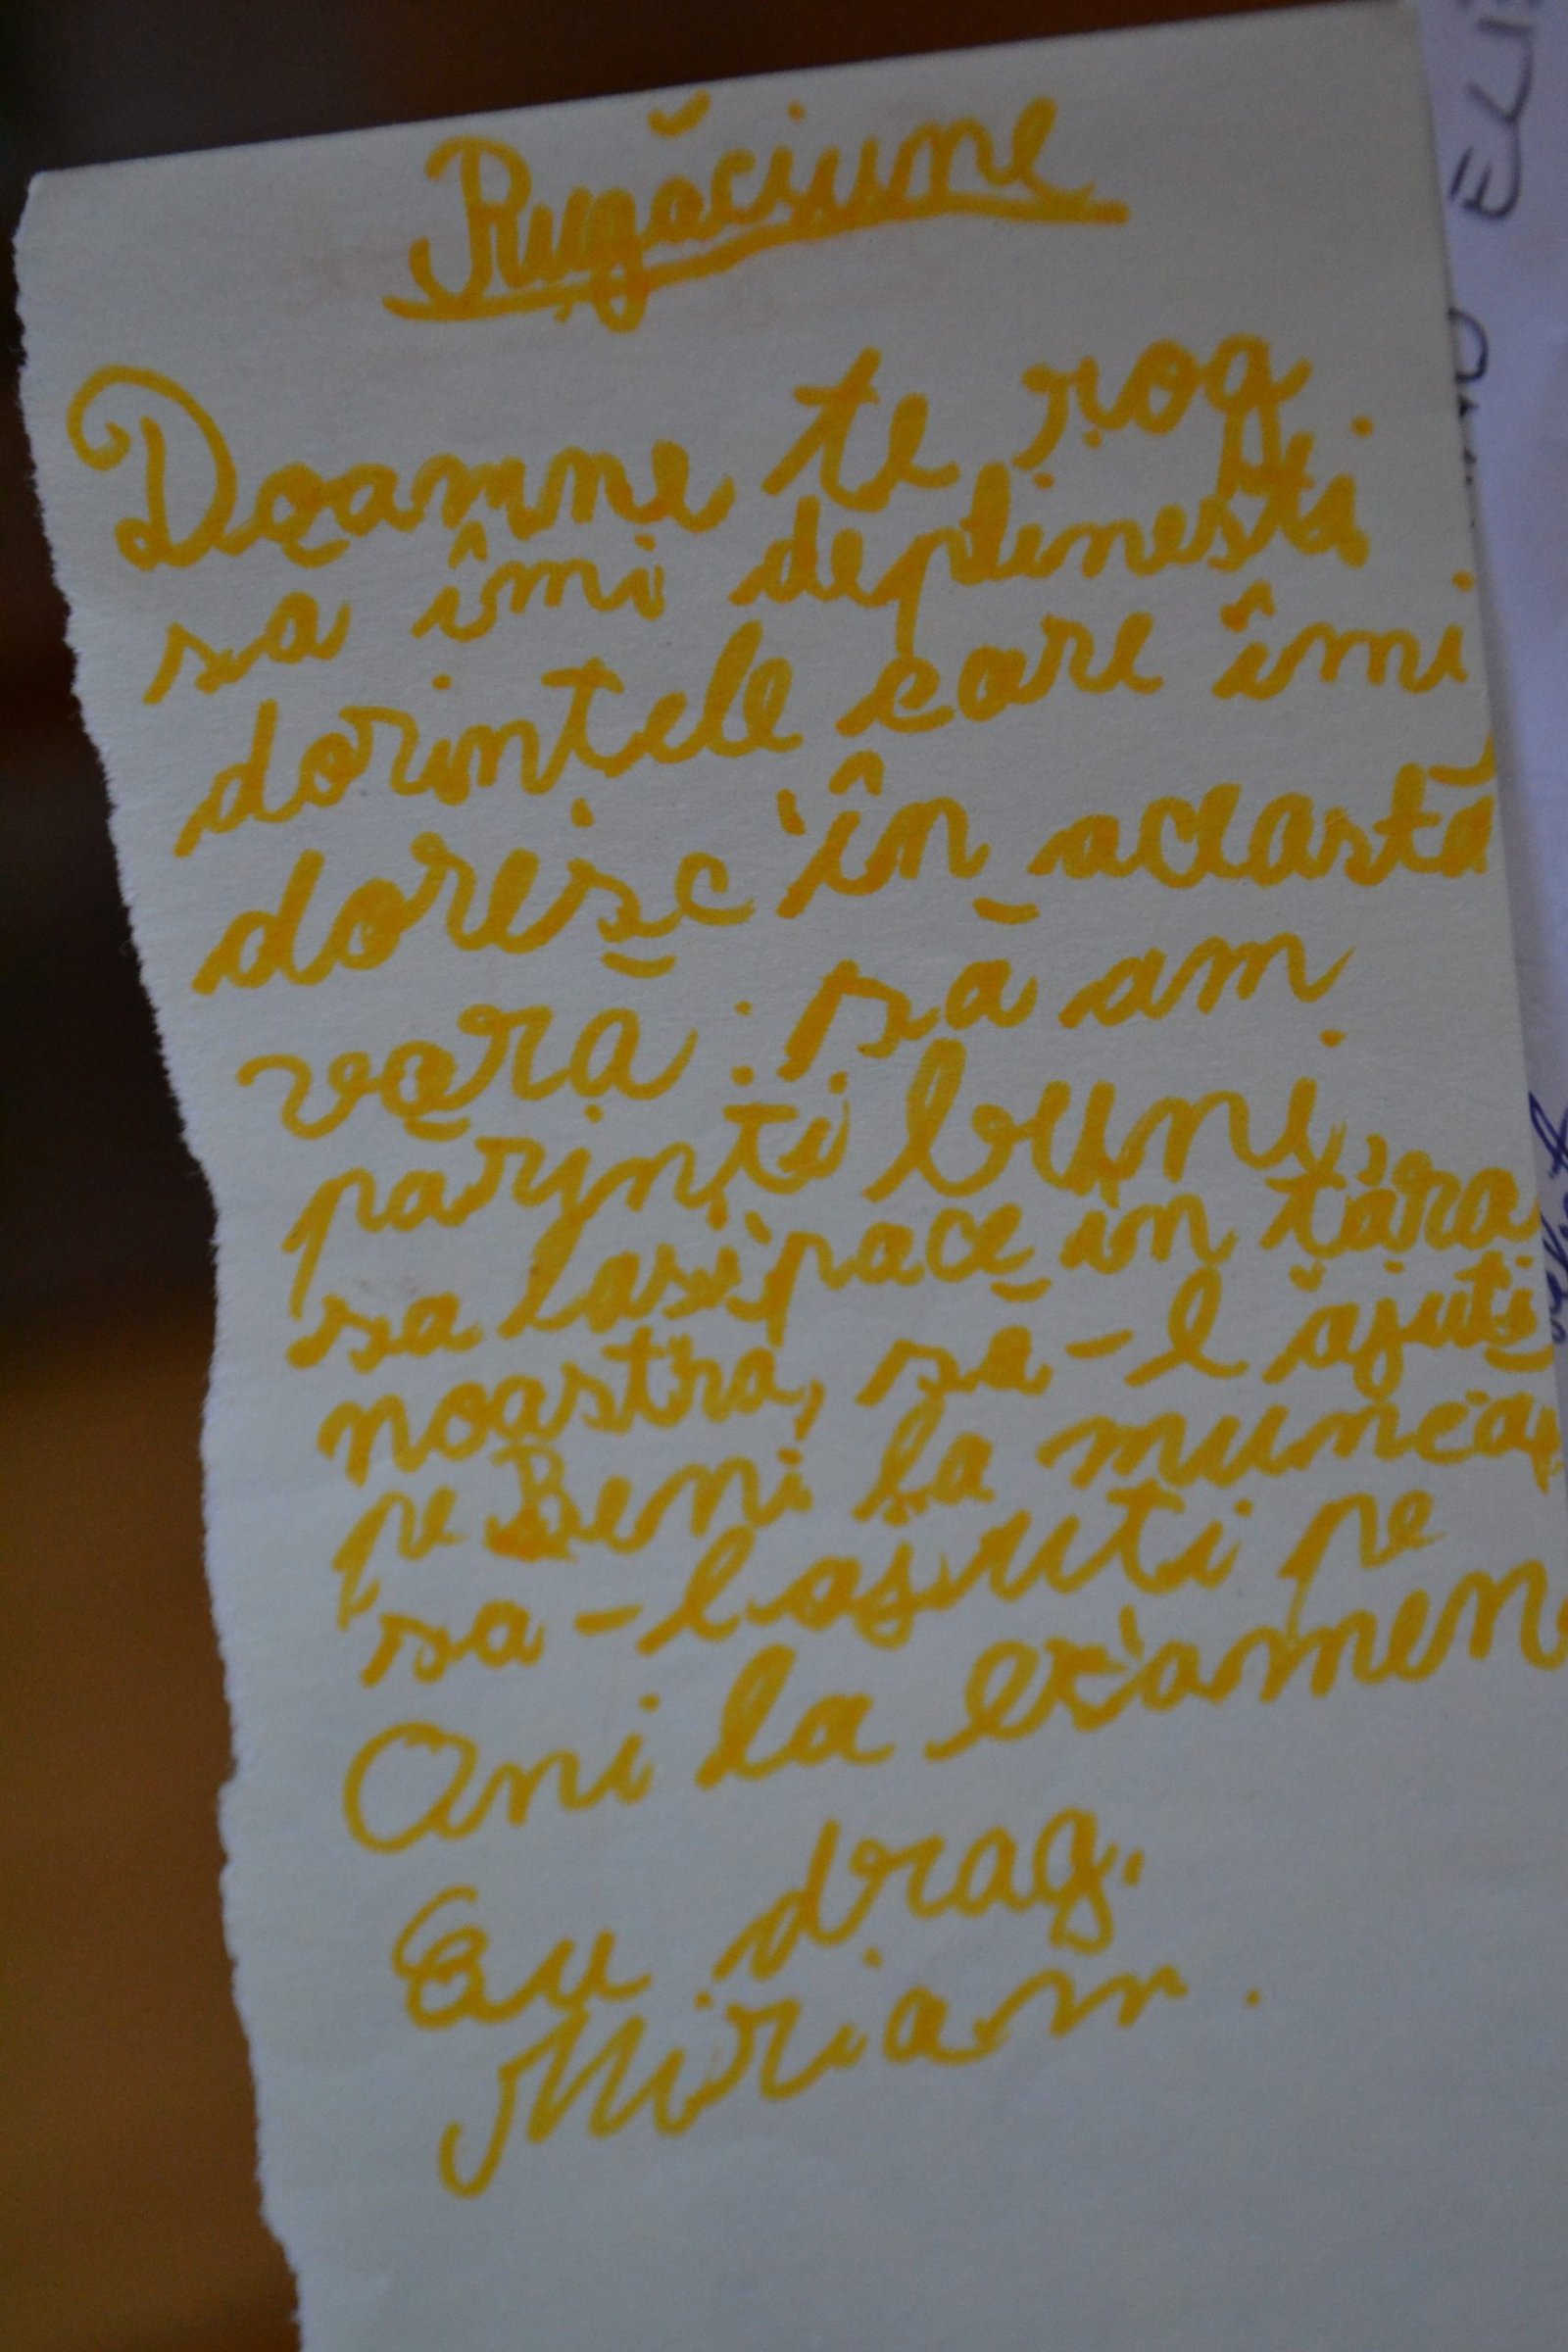 Rugăciune
Doamne te rog
sa îmi deplinesti
dorințele care îmi
doresc în această
vară: să am
parinți buni,
sa lasi pace in țara
noastra, să-l ajuți
pe Beni la munca,
sa-l ajuti pe
Oni la examen
Cu drag.
Miriam.
ELIE